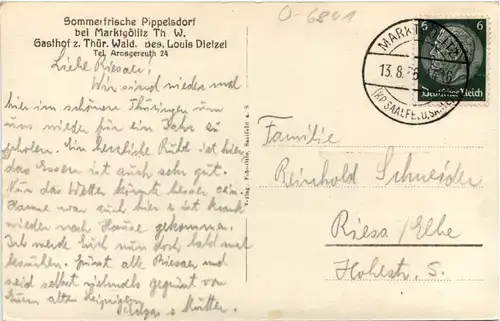 Sommerfrische Pippelsdorf
bei Marktgölitz Th W.
Gasthof z. Thür. Wald. Bes. Louis Dietzel
Tel. Arnsgereuth 24
O-6801
Liebe Riesaer!
Wir sind wieder mal
hier im schönen Thüringen um
uns wieder für ein Jahr zu
erholen. Eine herrliche Ruhe ist hier
das Essen ist auch sehr gut.
Nur das Wetter könnte besser sein.
Hanne war auch hier ist krank
wieder nach Hause gekommen.
Ich werde Euch nun doch bald mal
besuchen. Grüsst alle Riesaer und
seid selbst vielmals gegrüsst von
Euern alten Leipzigern
u Mutter.
Familie
Reinhold Schneider
Riesa/Elbe
Hohestr. 5.
MARKTGÖLITZ
13.8.
(KR. SAALFELD, SAALE)
6 6
Deutsches Reich